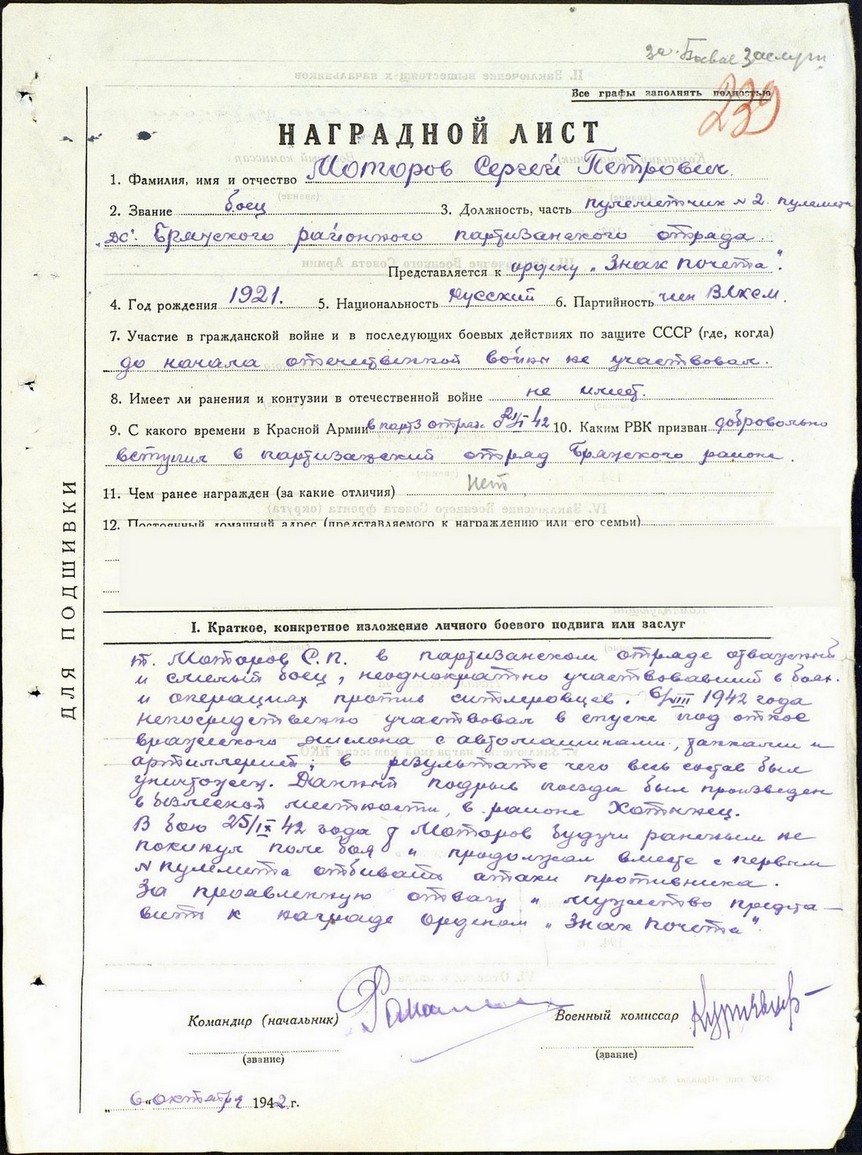 за Боевые Заслуги
Все графы заполнять полностью
239
НАГРАДНОЙ ЛИСТ
1. Фамилия, имя и отчество Моторов Сергей Петрович.
2. Звание боец 3. Должность, часть пулеметчик N 2. пулемета
„ДС". Брянского районного партизанского отряда.
Представляется к ордену „Знак почета".
4. Год рождения 1921. 5. Национальность Русский 6. Партийность член ВЛКСМ.
7. Участие в гражданской войне и в последующих боевых действиях по защите СССР (где, когда)
до начала отечественной войны не участвовал.
8. Имеет ли ранения и контузии в отечественной войне не имеет.
9. С какого времени в Красной Армии в парт. отряде 42 10. Каким РВК призван добровольно
вступил в партизанский отряд Брянского района.
11. Чем ранее награжден (за какие отличия) Нет
12. Постоянный домашний адрес (представляемого к награждению или его семьи)
ДЛЯ ПОДШИВКИ
I. Краткое, конкретное изложение личного боевого подвига или заслуг
т. Моторов С.П. в партизанском отряде отважный
и смелый боец, неоднократно участвовавший в боях
и операциях против гитлеровцев. 6/VIII 1942 года
непосредственно участвовал в спуске под откос
вражеского эшелона с автомашинами, танками и
артиллерией; в результате чего весь состав был
уничтожен. Данный подрыв поезда был произведен
в безлесной местности, в районе Хотынец.
В бою 25/IX 42 года т Моторов будучи раненым не
покинул поле боя и продолжал вместе с первым
N пулемета отбивать атаки противника.
За проявленную отвагу и мужество предста-
вить к награде орденом „Знак почета".
Командир (начальник) Военный комиссар
(звание) (звание)
„6" октября 1942 г.